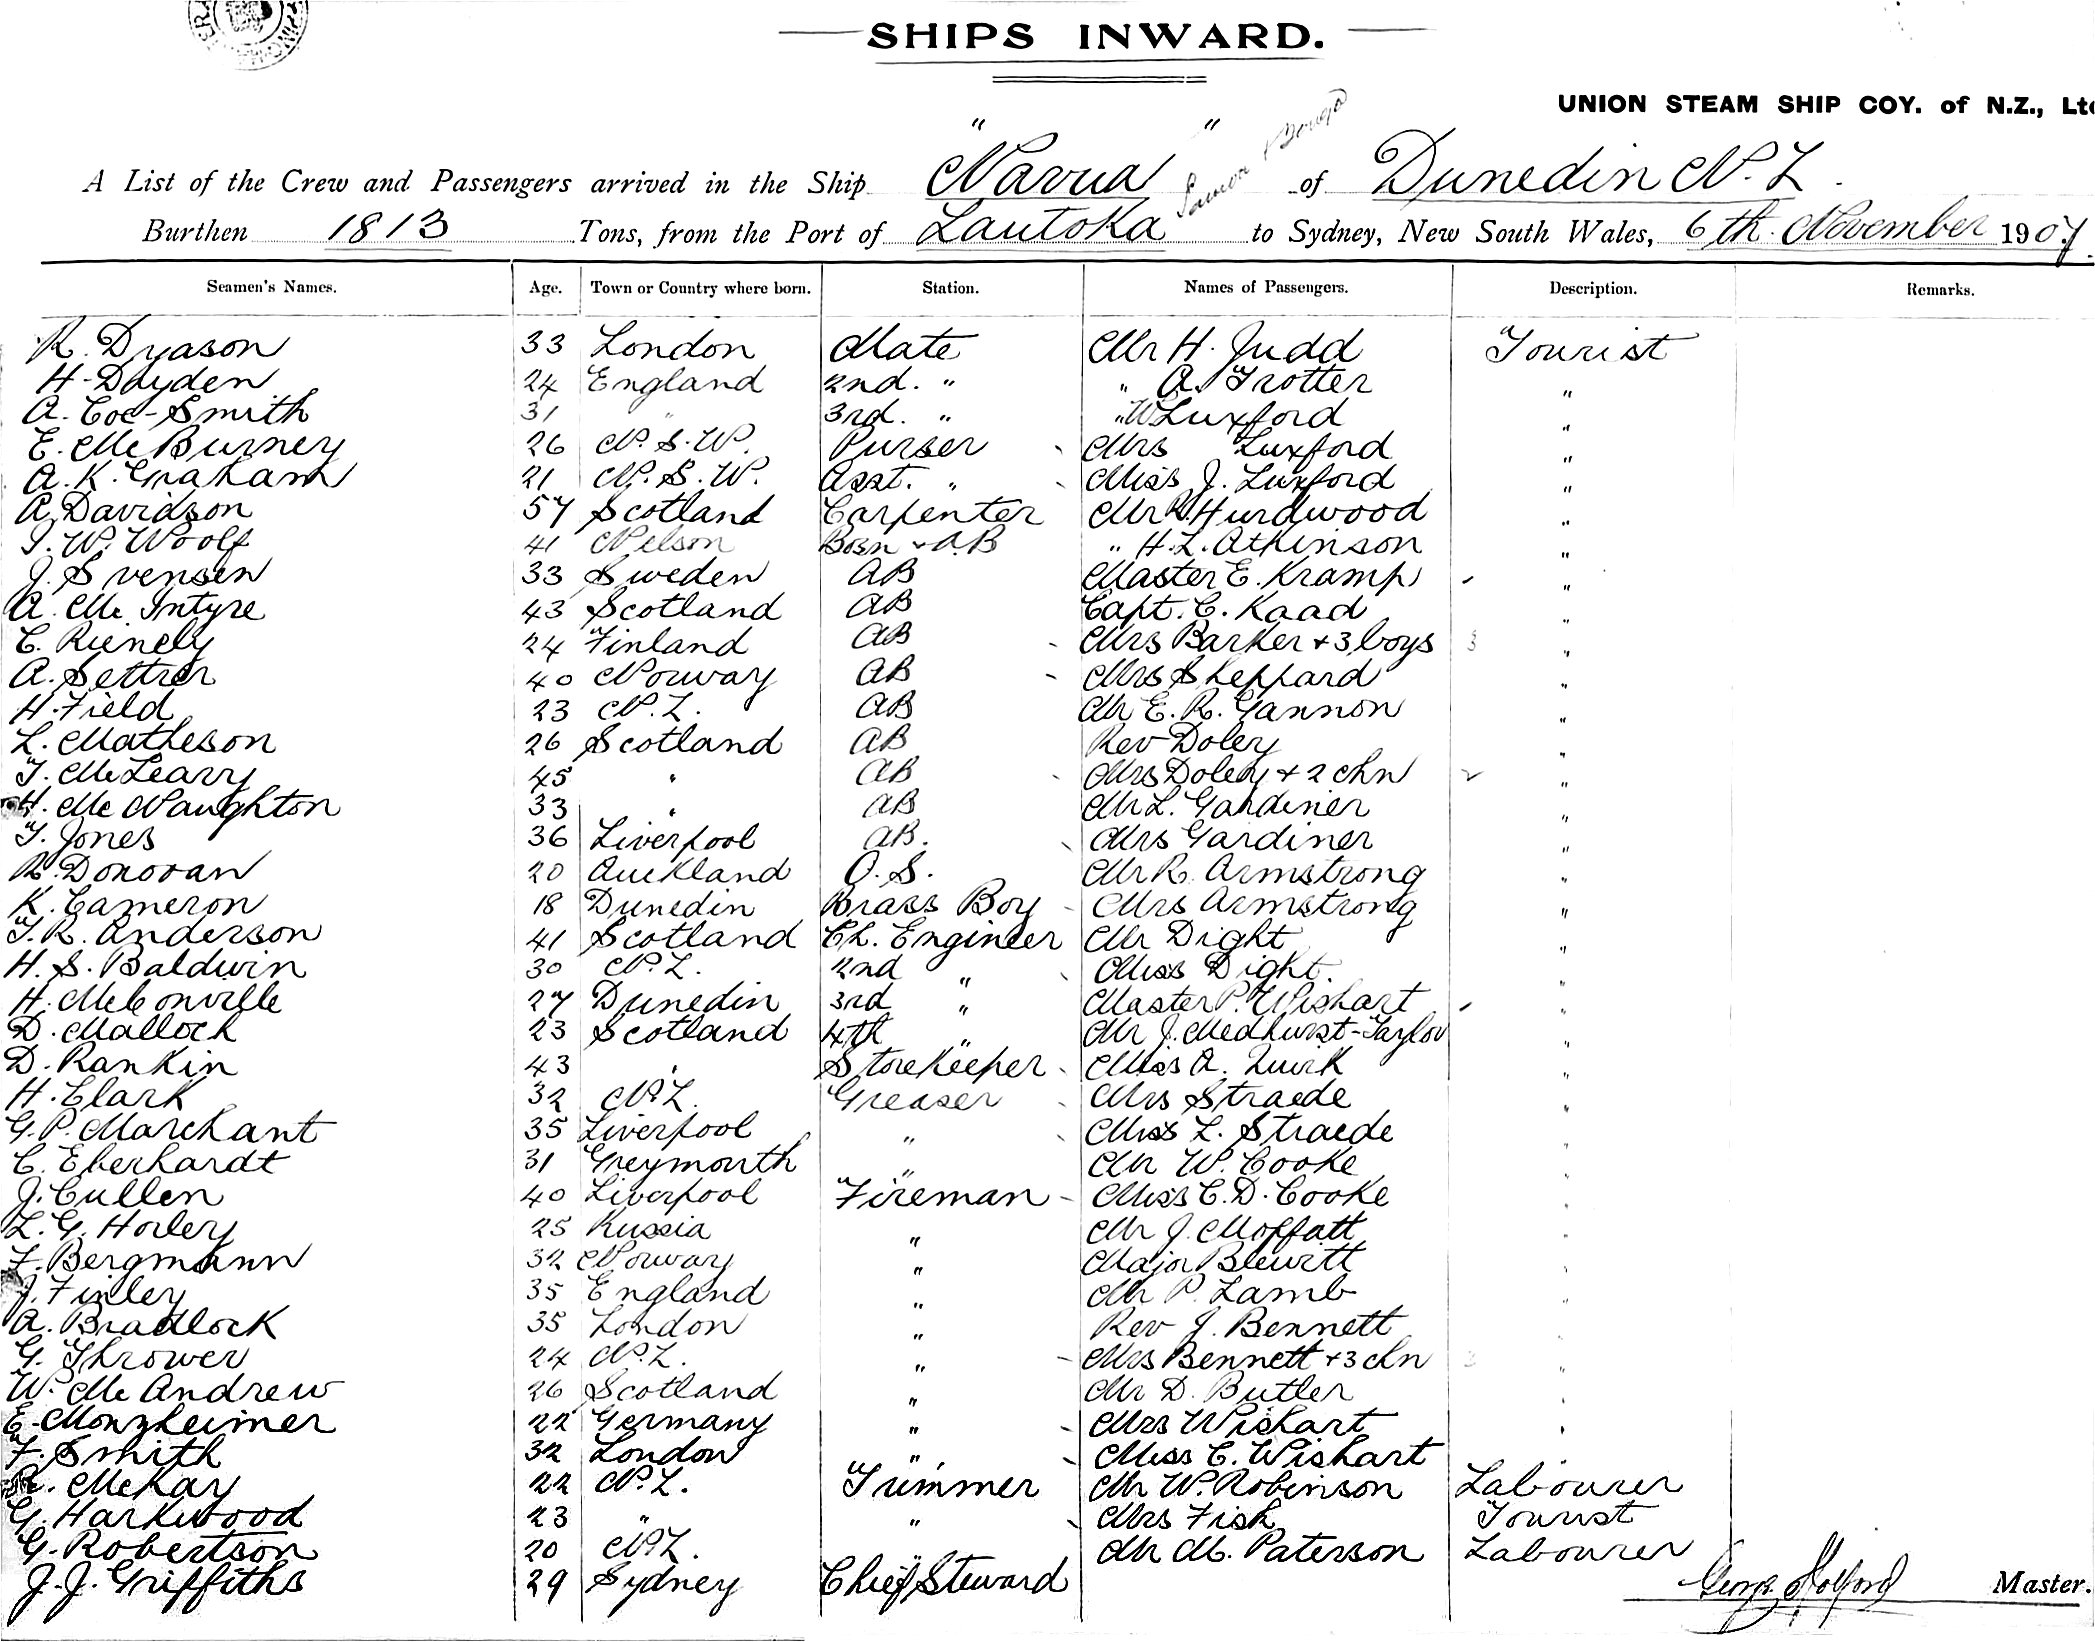 SHIPS INWARD.
UNION STEAM SHIP COY. of N.Z., Lt
A List of the Crew and Passengers arrived in the Ship "Navua" of Dunedin N.Z.
Burthen 1813 Tons, from the Port of Lautoka to Sydney, New South Wales, 6th. November 1907.
Seamen's Names. Age. Town or Country where born. Station. Names of Passengers. Description. Remarks.
R. Dyason 33 London Mate Mr H. Judd Tourist
H. Dayden 24 England 2nd. " " A. Trotter "
A. Coe-Smith 31 " 3rd. " " W Luxford "
E. McBurney 26 N.S.W. Purser Mrs Luxford "
A. K. Graham 21 N.S.W. Asst. " Miss J. Luxford "
A. Davidson 57 Scotland Carpenter Mr Hurdwood "
J. W. Woolf 41 Nelson Bosn + AB " H. L. Atkinson "
J. Svensen 33 Sweden AB Master E. Kramp "
A. McIntyre 43 Scotland AB Capt. C. Kaad "
C. Rienely 24 Finland AB Mrs Barker + 3 boys 3 "
A. Settrer 40 Norway AB Mrs Sheppard "
H. Field 23 N.Z. AB Mr E. R. Gannon "
L. Matheson 26 Scotland AB Rev Doley "
T. McLeary 45 " AB Mrs Doley + 2 chn 2 "
H. McNaughton 33 " AB Mr L. Gardiner "
T. Jones 36 Liverpool AB. Mrs Gardiner "
R. Donovan 20 Auckland O.S. Mr R. Armstrong "
K. Cameron 18 Dunedin Brass Boy Mrs Armstrong "
T. R. Anderson 41 Scotland Ch. Engineer Mr Dight "
H. S. Baldwin 30 N.Z. 2nd " Miss Dight. "
H. McConville 27 Dunedin 3rd " Master P. Wishart "
D. Mallock 23 Scotland 4th " Mr J. Medhurst-Taylor "
D. Rankin 43 " Storekeeper Miss A. Quirk "
H. Clark 32 N.Z. Greaser Mrs Straede "
G. P. Marchant 35 Liverpool " Miss L. Straede "
C. Eberhardt 31 Greymouth " Mr W. Cooke "
J. Cullen 40 Liverpool Fireman Miss C. D. Cooke "
L. G. Horley 25 Russia " Mr J. Moffatt "
F. Bergmann 32 Norway " Major Blewitt "
J. Finley 35 England " Mr P. Lamb "
A. Bradlock 35 London " Rev J. Bennett "
G. Thrower 24 N.Z. " Mrs Bennett + 3 chn 3 "
W. McAndrew 26 Scotland " Mr D. Butler "
E. Monzheimer 22 Germany " Mrs Wishart "
F. Smith 32 London " Miss C. Wishart
R. McKay 22 N.Z. Trimmer Mr W. Robinson Labourer
G. Harkwood 23 " " Mrs Fish Tourist
G. Robertson 20 N.Z. Mr M. Paterson Labourer
J. J. Griffiths 29 Sydney Chief Steward
George Holford Master.